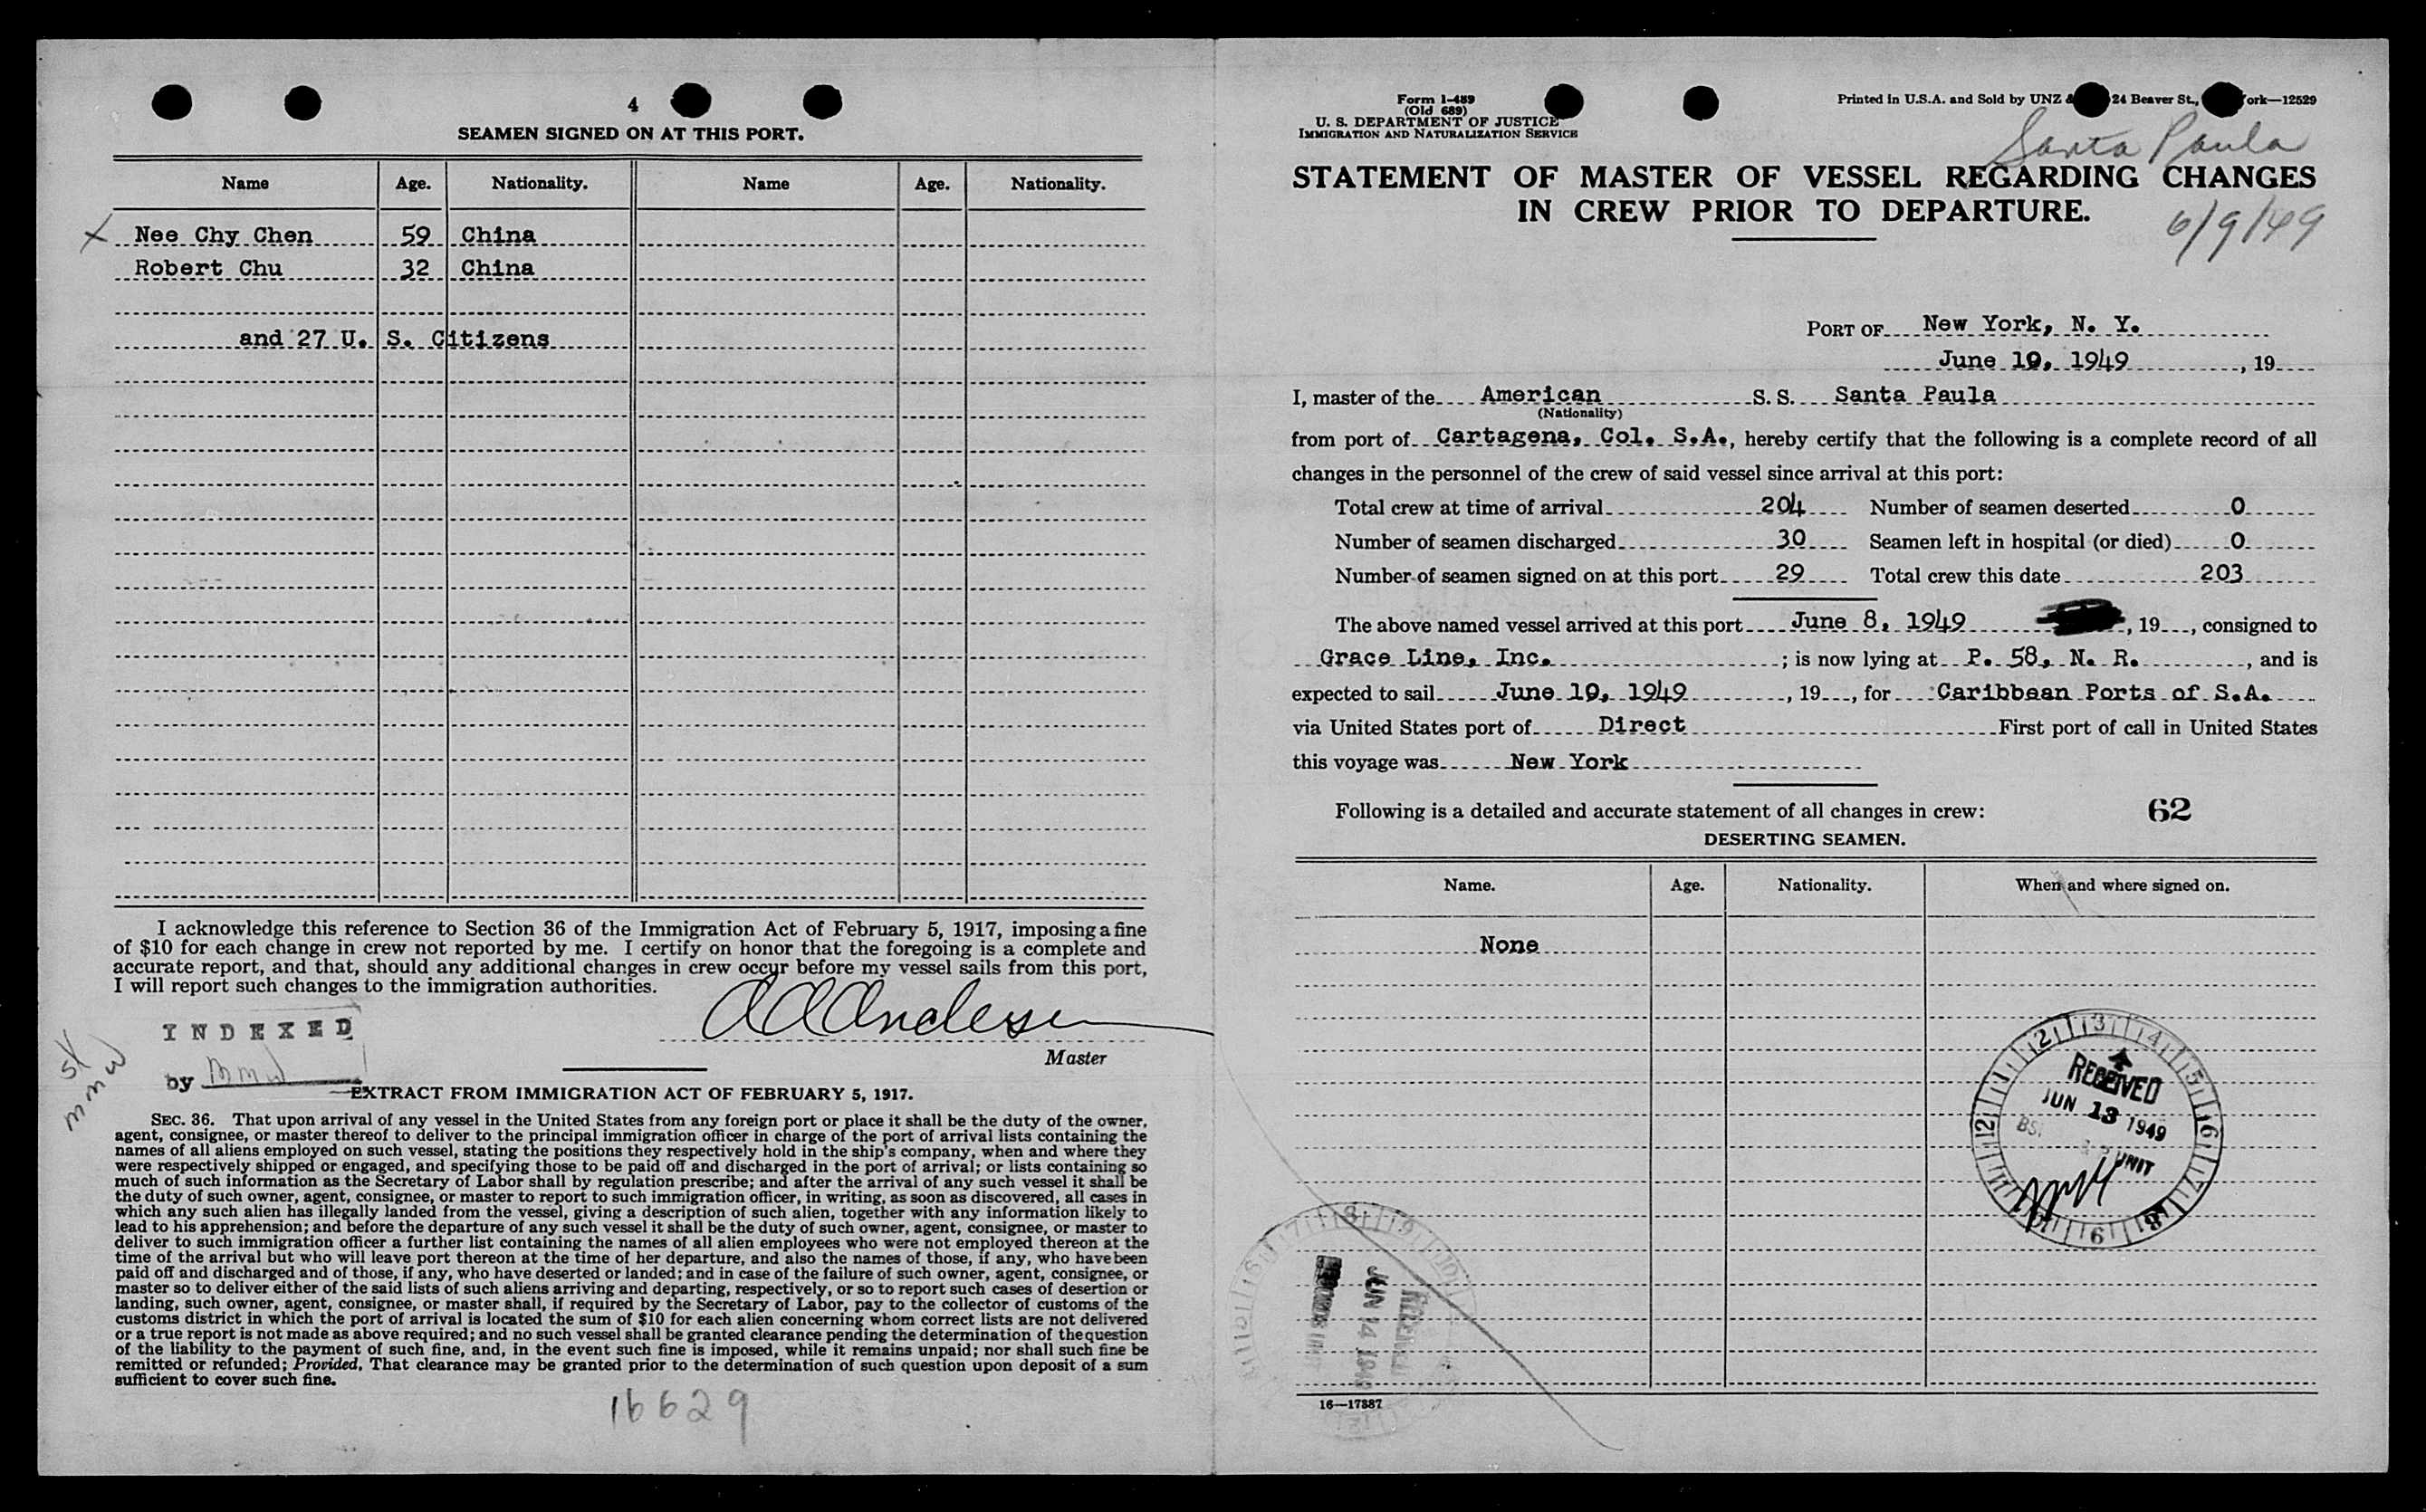 4
SEAMEN SIGNED ON AT THIS PORT.
Name Age. Nationality. Name Age. Nationality.
X Nee Chy Chen 59 China
Robert Chu 32 China
and 27 U. S. Citizens
I acknowledge this reference to Section 36 of the Immigration Act of February 5, 1917, imposing a fine
of $10 for each change in crew not reported by me. I certify on honor that the foregoing is a complete and
accurate report, and that, should any additional changes in crew occur before my vessel sails from this port,
I will report such changes to the immigration authorities.
INDEXED
Master
by mmw
EXTRACT FROM IMMIGRATION ACT OF FEBRUARY 5, 1917.
SEC. 36. That upon arrival of any vessel in the United States from any foreign port or place it shall be the duty of the owner,
agent, consignee, or master thereof to deliver to the principal immigration officer in charge of the port of arrival lists containing the
names of all aliens employed on such vessel, stating the positions they respectively hold in the ship's company, when and where they
were respectively shipped or engaged, and specifying those to be paid off and discharged in the port of arrival; or lists containing so
much of such information as the Secretary of Labor shall by regulation prescribe; and after the arrival of any such vessel it shall be
the duty of such owner, agent, consignee, or master to report to such immigration officer, in writing, as soon as discovered, all cases in
which any such alien has illegally landed from the vessel, giving a description of such alien, together with any information likely to
lead to his apprehension; and before the departure of any such vessel it shall be the duty of such owner, agent, consignee, or master to
deliver to such immigration officer a further list containing the names of all alien employees who were not employed thereon at the
time of the arrival but who will leave port thereon at the time of her departure, and also the names of those, if any, who have been
paid off and discharged and of those, if any, who have deserted or landed; and in case of the failure of such owner, agent, consignee, or
master so to deliver either of the said lists of such aliens arriving and departing, respectively, or so to report such cases of desertion or
landing, such owner, agent, consignee, or master shall, if required by the Secretary of Labor, pay to the collector of customs of the
customs district in which the port of arrival is located the sum of $10 for each alien concerning whom correct lists are not delivered
or a true report is not made as above required; and no such vessel shall be granted clearance pending the determination of the question
of the liability to the payment of such fine, and, in the event such fine is imposed, while it remains unpaid; nor shall such fine be
remitted or refunded; Provided, That clearance may be granted prior to the determination of such question upon deposit of a sum
sufficient to cover such fine.
16629
Form I-489
(Old 689)
U. S. DEPARTMENT OF JUSTICE
IMMIGRATION AND NATURALIZATION SERVICE
Printed in U.S.A. and Sold by UNZ & 24 Beaver St., ork—12529
Santa Paula
STATEMENT OF MASTER OF VESSEL REGARDING CHANGES
IN CREW PRIOR TO DEPARTURE.
6/9/49
PORT OF New York, N. Y.
June 10, 1949, 19
I, master of the American S. S. Santa Paula
(Nationality)
from port of Cartagena, Col. S.A., hereby certify that the following is a complete record of all
changes in the personnel of the crew of said vessel since arrival at this port:
Total crew at time of arrival 204 Number of seamen deserted 0
Number of seamen discharged 30 Seamen left in hospital (or died) 0
Number of seamen signed on at this port 29 Total crew this date 203
The above named vessel arrived at this port June 8, 1949, 19, consigned to
Grace Line, Inc. ; is now lying at P. 58, N. R. , and is
expected to sail June 10, 1949, 19, for Caribbean Ports of S.A.
via United States port of Direct First port of call in United States
this voyage was New York
Following is a detailed and accurate statement of all changes in crew: 62
DESERTING SEAMEN.
Name. Age. Nationality. When and where signed on.
None
RECEIVED
JUN 13 1949
UNIT
JUN 14 1949
16—17887